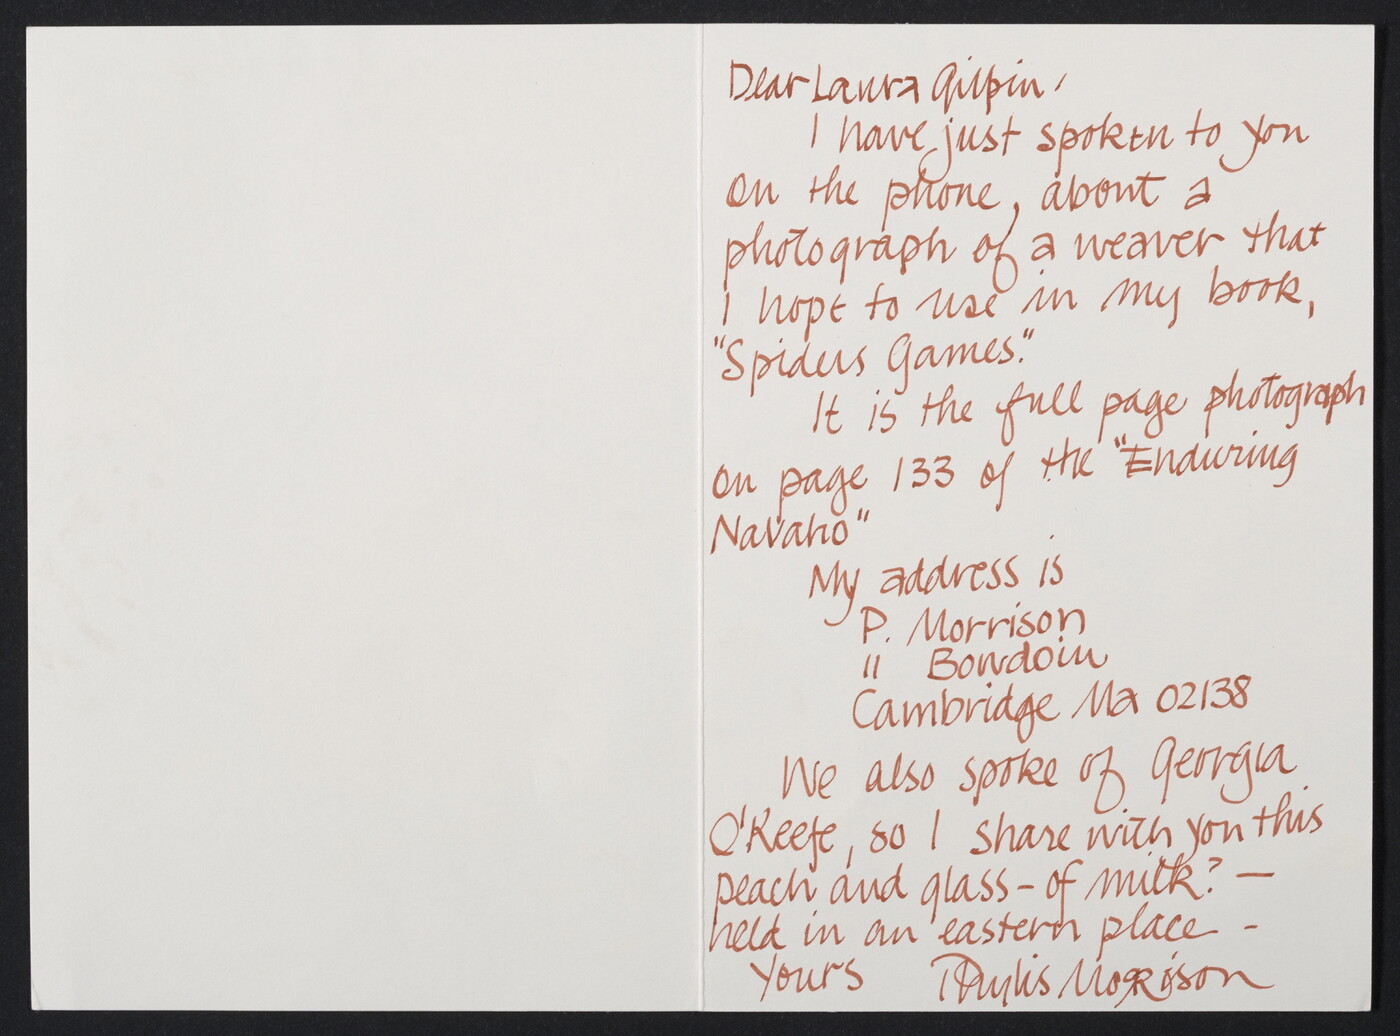 Dear Laura Gilpin,
I have just spoken to you
on the phone, about a
photograph of a weaver that
I hope to use in my book,
"Spiders Games."
It is the full page photograph
on page 133 of the "Enduring
Navaho"
My address is
P. Morrison
11 Bowdoin
Cambridge Ma 02138
We also spoke of Georgia
O'Keefe, so I share with you this
peach and glass - of milk? —
held in an eastern place -
Yours Phylis Morrison